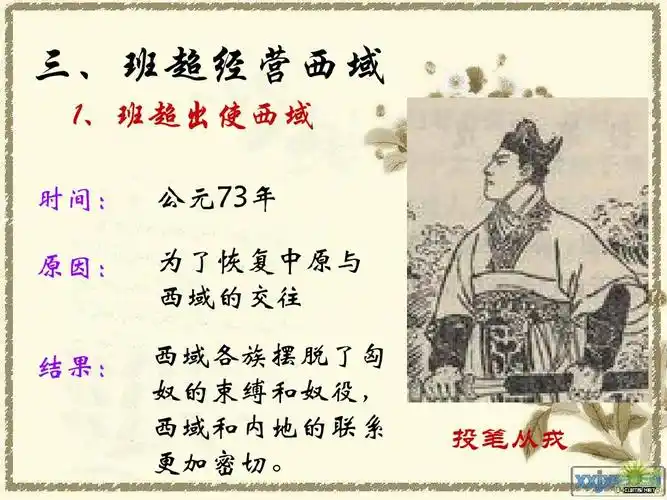 三、班超经营西域
1、班超出使西域
时间： 公元73年
原因： 为了恢复中原与
西域的交往
结果： 西域各族摆脱了匈
奴的束缚和奴役，
西域和内地的联系
更加密切。
投笔从戎